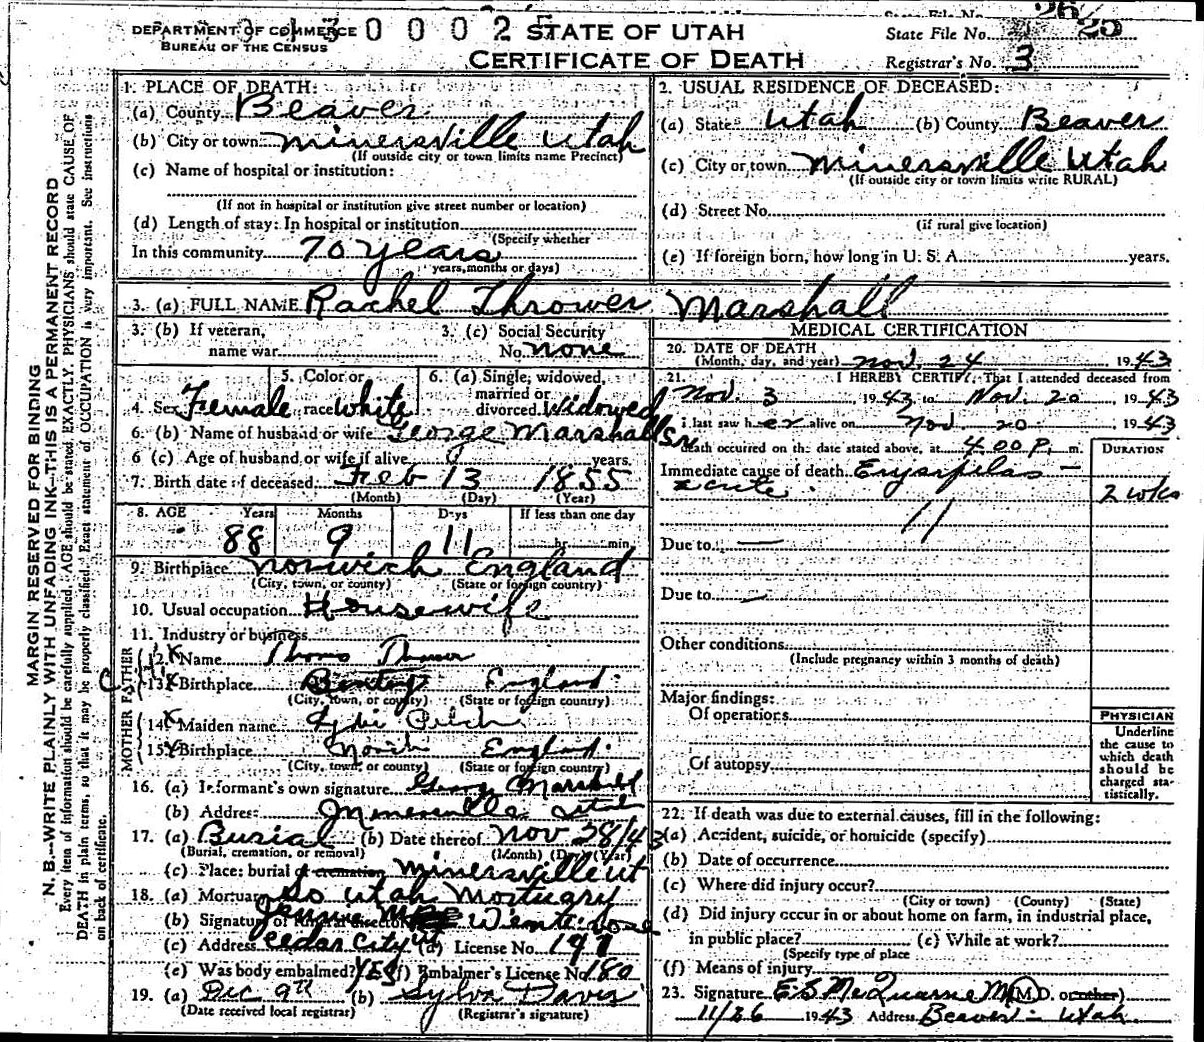 DEPARTMENT OF COMMERCE
BUREAU OF THE CENSUS
STATE OF UTAH
CERTIFICATE OF DEATH
State File No. 25
Registrar's No. 3
MARGIN RESERVED FOR BINDING
N. B.—WRITE PLAINLY WITH UNFADING INK—THIS IS A PERMANENT RECORD
Every item of information should be carefully supplied. AGE should be stated EXACTLY. PHYSICIANS should state CAUSE OF
DEATH in plain terms, so that it may be properly classified. Exact statement of OCCUPATION is very important. See instructions
on back of certificate.
1. PLACE OF DEATH:
(a) County Beaver
(b) City or town Minersville Utah
(If outside city or town limits name Precinct)
(c) Name of hospital or institution:
(If not in hospital or institution give street number or location)
(d) Length of stay: In hospital or institution
(Specify whether
In this community 70 years
years, months or days)
2. USUAL RESIDENCE OF DECEASED:
(a) State Utah (b) County Beaver
(c) City or town Minersville Utah
(If outside city or town limits write RURAL)
(d) Street No.
(if rural give location)
(e) If foreign born, how long in U. S. A. years.
3. (a) FULL NAME Rachel Thrower Marshall
3. (b) If veteran,
name war
3. (c) Social Security
No. none
4. Sex Female
5. Color or
race white
6. (a) Single, widowed,
married or
divorced Widowed
6. (b) Name of husband or wife George Marshall Sr.
6 (c) Age of husband or wife if alive years.
7. Birth date of deceased Feb 13 1855
(Month) (Day) (Year)
8. AGE Years Months Days If less than one day
88 9 11 hr. min.
9. Birthplace Norwich England
(City, town, or county) (State or foreign country)
10. Usual occupation Housewife
11. Industry or business
FATHER
12. Name Thomas Thrower
13. Birthplace England
(City, town, or county) (State or foreign country)
MOTHER
14. Maiden name Pilch
15. Birthplace England
(City, town, or county) (State or foreign country)
16. (a) Informant's own signature George Marshall
(b) Address Minersville Utah
17. (a) Burial (b) Date thereof Nov 28/43
(Burial, cremation, or removal) (Month) (Day) (Year)
(c) Place: burial or cremation Minersville Ut
18. (a) Mortuary So Utah Mortuary
(b) Signature of funeral director
(c) Address Cedar City Ut (d) License No. 197
(e) Was body embalmed? YES (f) Embalmer's License No. 180
19. (a) Dec 9th (b) Sylva Davis
(Date received local registrar) (Registrar's signature)
MEDICAL CERTIFICATION
20. DATE OF DEATH
(Month, day, and year) Nov. 24 1943
21. I HEREBY CERTIFY, That I attended deceased from
Nov. 3 1943 to Nov. 20, 1943
I last saw her alive on Nov. 20 1943
death occurred on the date stated above, at 4:00 P. m.
DURATION
Immediate cause of death Erysipelas —
acute. 2 wks
11
Due to —
Due to —
Other conditions
(Include pregnancy within 3 months of death)
Major findings:
Of operations
Of autopsy
PHYSICIAN
Underline
the cause to
which death
should be
charged sta-
tistically.
22. If death was due to external causes, fill in the following:
(a) Accident, suicide, or homicide (specify)
(b) Date of occurrence
(c) Where did injury occur?
(City or town) (County) (State)
(d) Did injury occur in or about home on farm, in industrial place,
in public place? (e) While at work?
(Specify type of place
(f) Means of injury
23. Signature E.S. McQuarrie M (M.D. or other)
11/26 1943 Address Beaver - Utah.